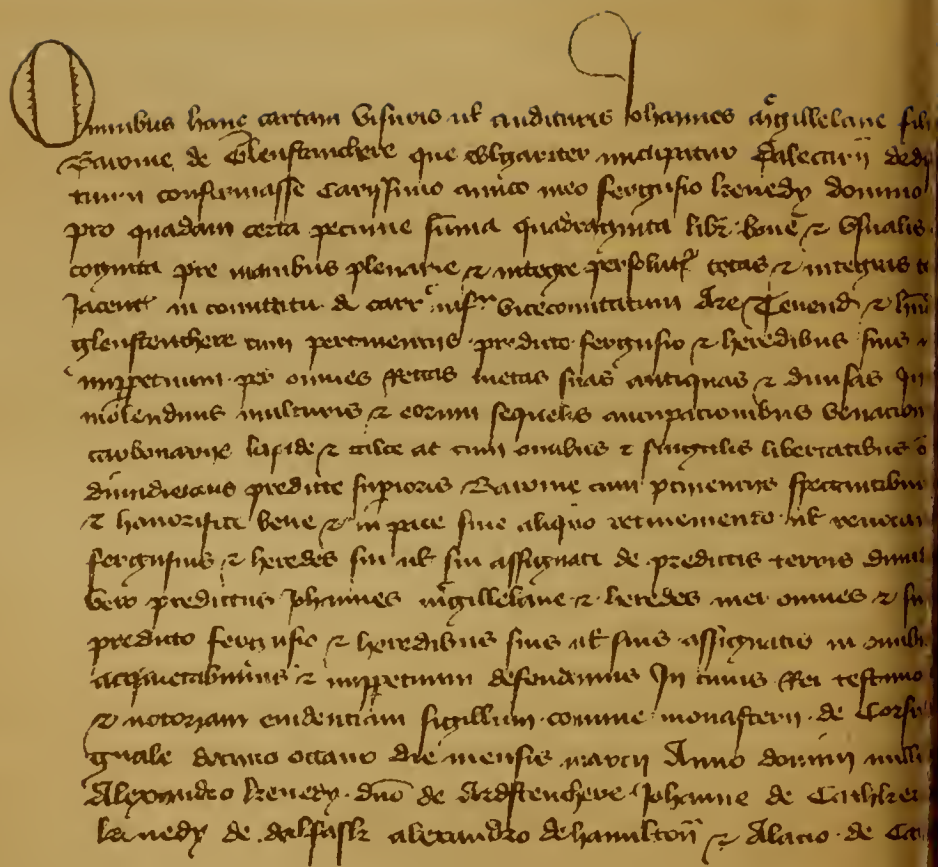 Omnibus hanc cartam visuris vel audituris Johannes mcgillelane fili
Baronie de Glenstenchere que wlgariter nuncupatur dalectarij dedi
confirmasse Carissimo amico meo fergusio kenedy domino
pro quadam certa pecunie suma quadraginta libr bone & usualis
cognita pre manibus plenarie & integre persolut totas & integras t
Jacent in comitatu de carrc infra vicecomitatum Are Tenend &
glenstenchere cum pertinenciis predicto fergusio & heredibus suis
imperpetuum per omnes rectas metas suas antiquas & diuisas In
molendinis multuris & eorum sequelis aucupacionibus venacion
carbonariis lapide & calce ac cum omnibus & singulis libertatibus
predicte superioris Baronie cum pertinenciis spectantibus
& honorifice bene & in pace sine aliquo retinemento vel reuocac
fergusius & heredes sui vel sui assignati de predictis terris dimi
vero predictus Johannes mcgillelane & heredes mei omnes & su
predicto fergusio & heredibus suis vel suis assignatis in omnib
acquietabimus & imperpetuum defendemus In cuius Rei testimo
& notoriam euidenciam sigillum comune monasterii de Corsr
decimo octauo die mensis marcij Anno domini mill
Alexandro kenedy duo de Ardstenchere Johanne de Cath
kenedy de dalfask alexandro de hamilton & Alano de Ca